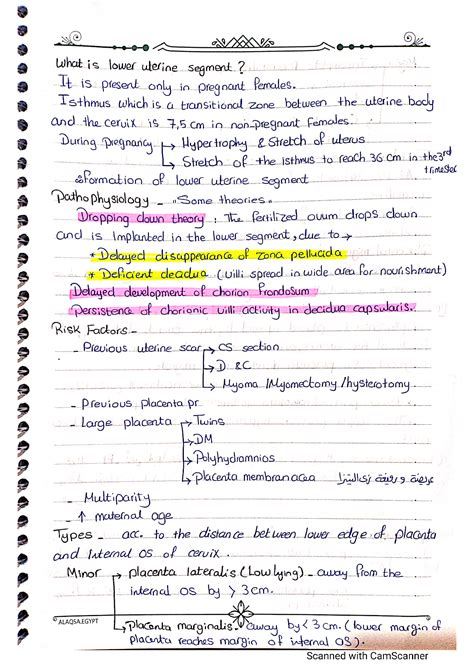 What is lower uterine segment ?
It is present only in pregnant females.
Isthmus which is a transitional zone between the uterine body
and the cervix is 7,5 cm in non-pregnant females.
During pregnancy → Hypertrophy & Stretch of uterus
→ Stretch of the isthmus to reach 36 cm in the 3rd
trimester
formation of lower uterine segment
Pathophysiology - "Some theories"
Dropping down theory : The fertilized ovum drops down
and is implanted in the lower segment, due to →
* Delayed disappearance of zona pellucida
* Deficient decidua (villi spread in wide area for nourishment)
Delayed development of chorion frondosum
Persistence of chorionic villi activity in decidua capsularis.
Risk Factors -
- Previous uterine scar → CS section
→ D & C
→ Myoma /Myomectomy /hysterotomy
- Previous placenta pr
- Large placenta → Twins
→ DM
→ Polyhydramnios
→ Placenta membranacea عريضة و رفيعة زي
- Multiparity
- ↑ maternal age
Types - acc. to the distance between lower edge of placenta
and internal OS of cervix.
Minor → placenta lateralis (Low lying) - away from the
internal OS by > 3cm.
→ Placenta marginalis - away by < 3 cm. (lower margin of
placenta reaches margin of internal OS).
ALAQSA.EGYPT
Scanned with CamScanner